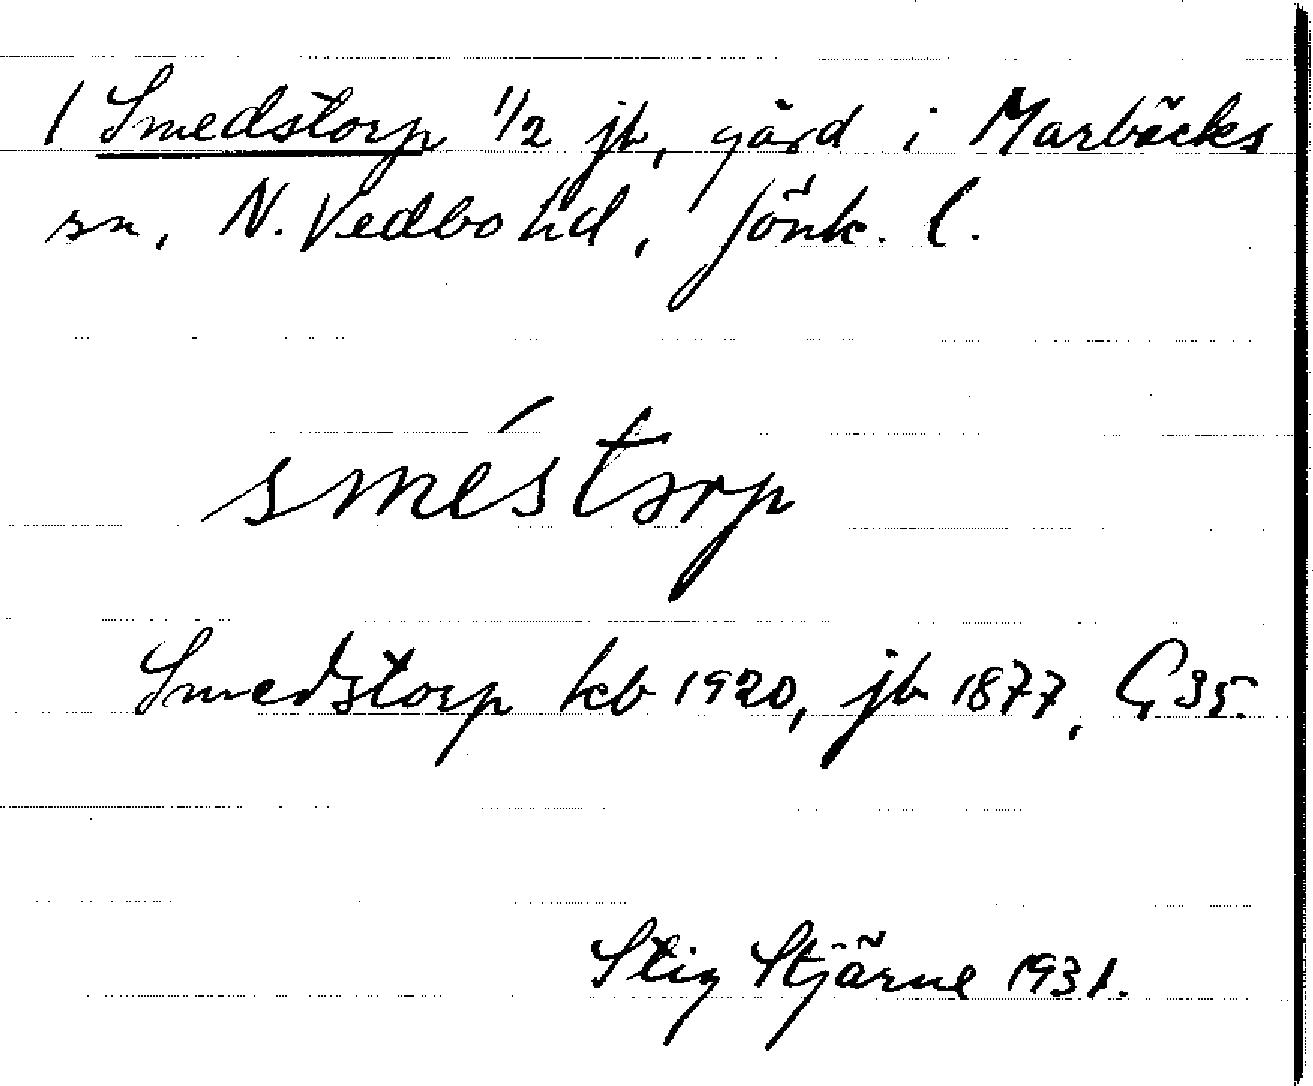 1 Smedstorp 1/2 jb, gård i Marbäcks
sn, N. Vedbo hd, Jönk. l.
sméstorp
Smedstorp kb 1920, jb 1877, G 35.
Stig Stjärne 1931.